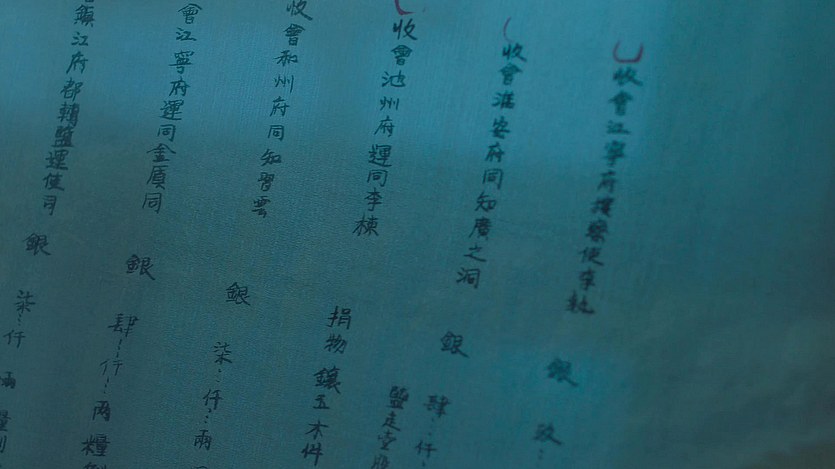 收會江寧府按察使李執
銀
玖
收會淮安府同知廣之洞
銀
肆仟
鹽走壹
收會池州府運同李棟
捐物 鑲玉木件
收會和州府同知習雲
銀
柒仟兩
會江寧府運同金順同
銀
肆仟兩糧
鎮江府都轉鹽運使司
銀
柒仟兩糧